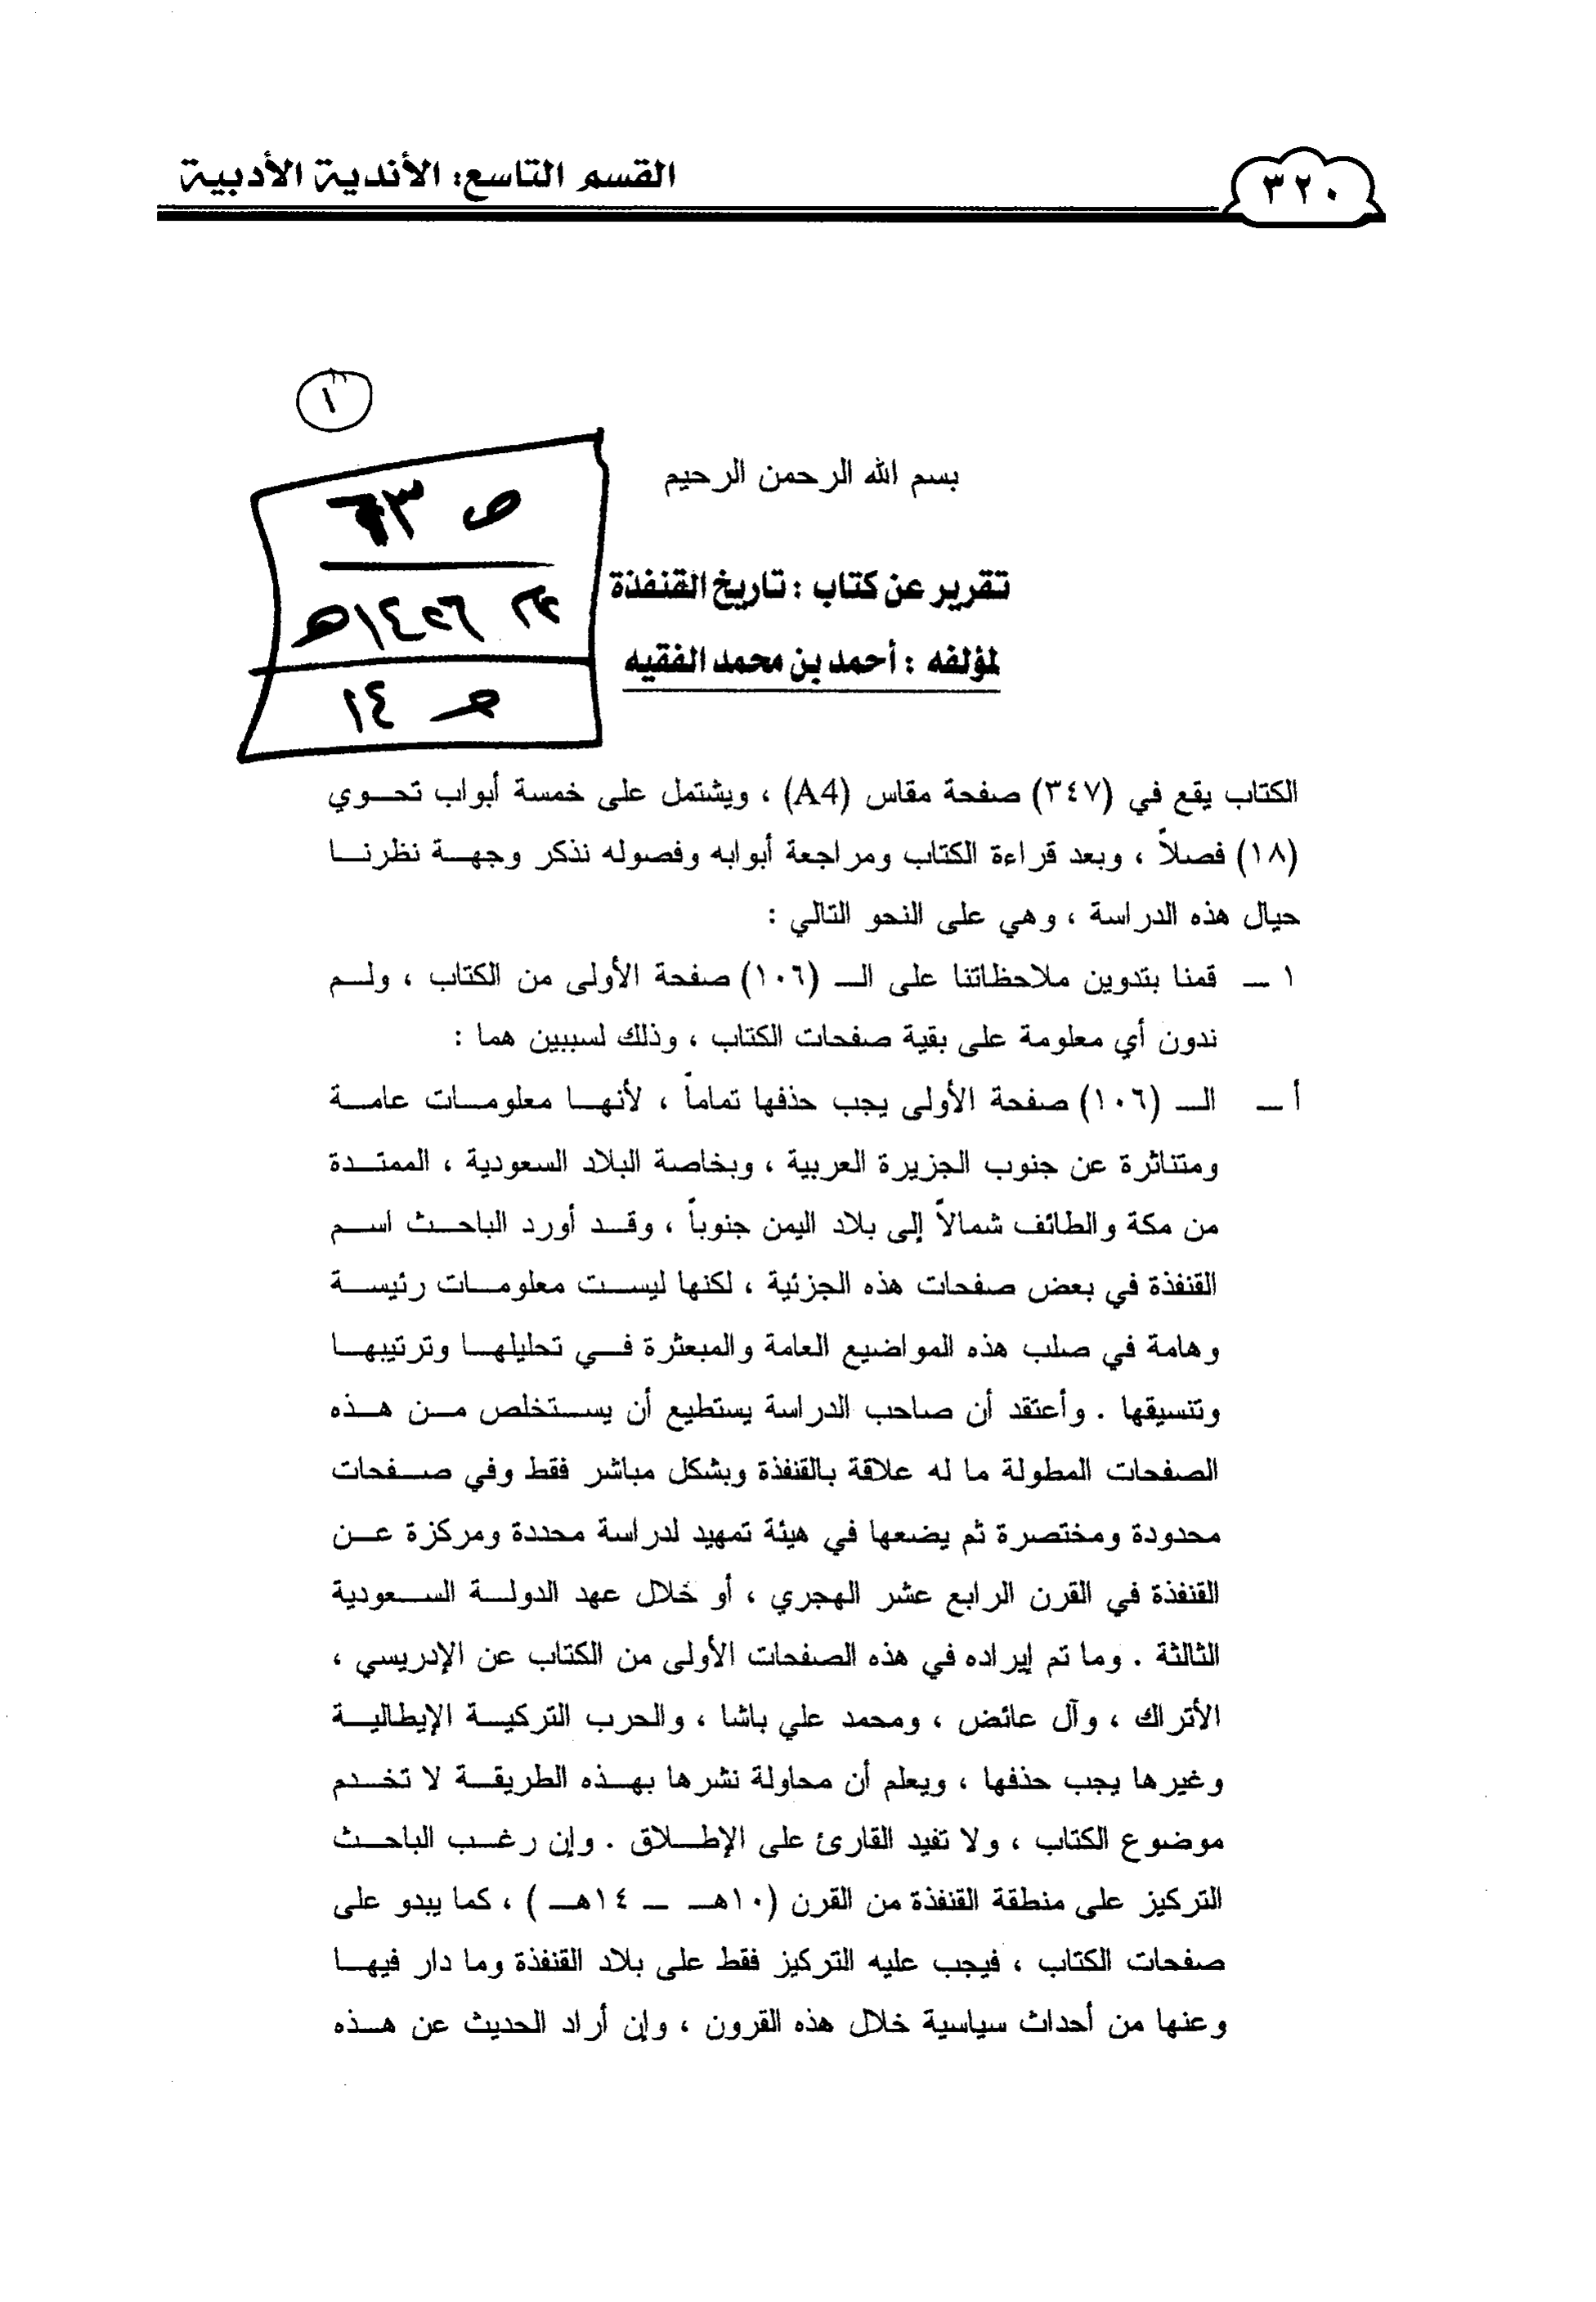 القسم التاسع: الأندية الأدبية
٣٢٠
١
بسم الله الرحمن الرحيم
تقرير عن كتاب : تاريخ القنفذة
لمؤلفه : أحمد بن محمد الفقيه
ص
١٤٢٦هـ
١٤
الكتاب يقع في (٣٤٧) صفحة مقاس (A4) ، ويشتمل على خمسة أبواب تحـوي
(١٨) فصلاً ، وبعد قراءة الكتاب ومراجعة أبوابه وفصوله نذكر وجهـة نظرنـا
حيال هذه الدراسة ، وهي على النحو التالي :
١ ـ قمنا بتدوين ملاحظاتنا على الـ (١٠٦) صفحة الأولى من الكتاب ، ولـم
ندون أي معلومة على بقية صفحات الكتاب ، وذلك لسببين هما :
أ ـ الـ (١٠٦) صفحة الأولى يجب حذفها تماماً ، لأنهـا معلومـات عامـة
ومتناثرة عن جنوب الجزيرة العربية ، وبخاصة البلاد السعودية ، الممتـدة
من مكة والطائف شمالاً إلى بلاد اليمن جنوباً ، وقـد أورد الباحـث اسـم
القنفذة في بعض صفحات هذه الجزئية ، لكنها ليسـت معلومـات رئيسـة
وهامة في صلب هذه المواضيع العامة والمبعثرة فـي تحليلهـا وترتيبهـا
وتنسيقها . وأعتقد أن صاحب الدراسة يستطيع أن يسـتخلص مـن هـذه
الصفحات المطولة ما له علاقة بالقنفذة وبشكل مباشر فقط وفي صـفحات
محدودة ومختصرة ثم يضعها في هيئة تمهيد لدراسة محددة ومركزة عـن
القنفذة في القرن الرابع عشر الهجري ، أو خلال عهد الدولـة السـعودية
الثالثة . وما تم إيراده في هذه الصفحات الأولى من الكتاب عن الإدريسي ،
الأتراك ، وآل عائض ، ومحمد علي باشا ، والحرب التركيـة الإيطاليـة
وغيرها يجب حذفها ، ويعلم أن محاولة نشرها بهـذه الطريقـة لا تخـدم
موضوع الكتاب ، ولا تفيد القارئ على الإطـلاق . وإن رغـب الباحـث
التركيز على منطقة القنفذة من القرن (١٠هـ ـ ١٤هـ ) ، كما يبدو على
صفحات الكتاب ، فيجب عليه التركيز فقط على بلاد القنفذة وما دار فيهـا
وعنها من أحداث سياسية خلال هذه القرون ، وإن أراد الحديث عن هـذه